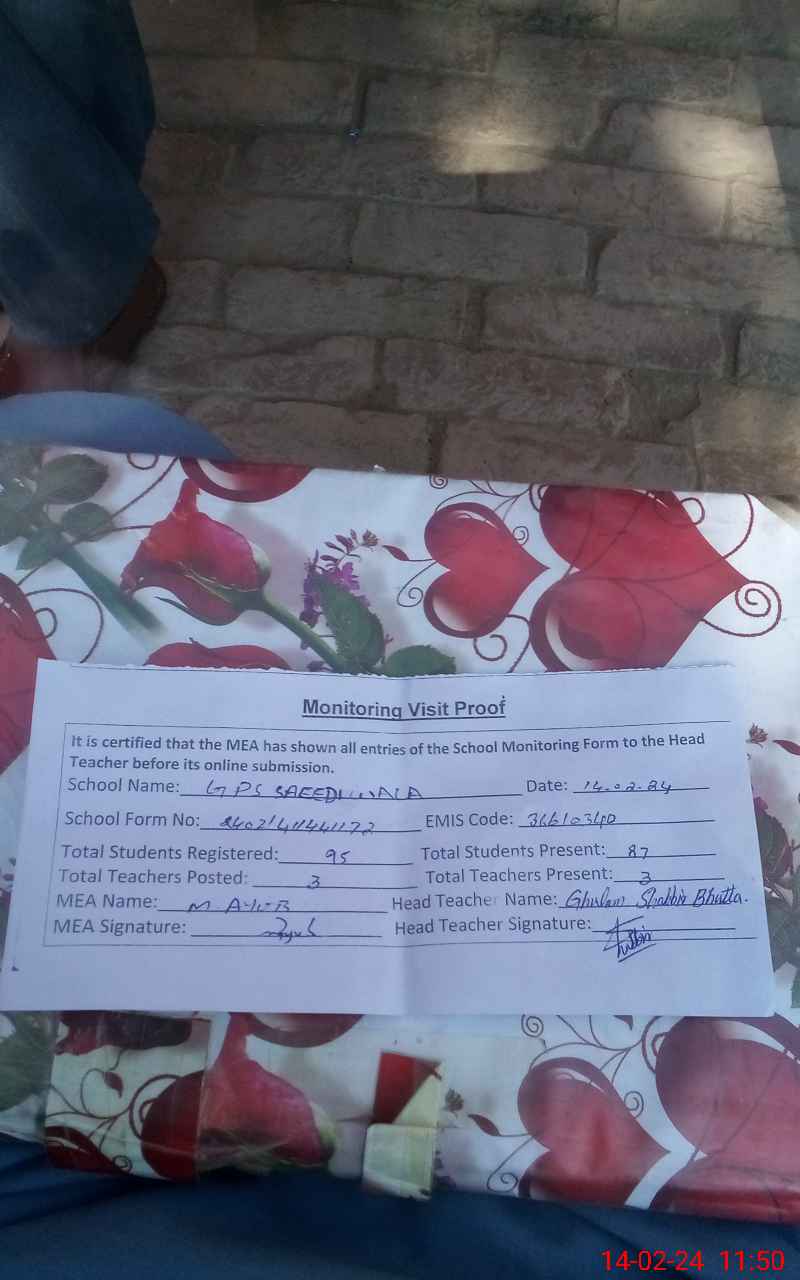 Monitoring Visit Proof
It is certified that the MEA has shown all entries of the School Monitoring Form to the Head
Teacher before its online submission.
School Name: GPS SAEEDIWALA Date: 14.02.24
School Form No: EMIS Code: 36610340
Total Students Registered: 95 Total Students Present: 87
Total Teachers Posted: 3 Total Teachers Present: 3
MEA Name: M. AYUB Head Teacher Name: Ghulam Shabbir Bhutta.
MEA Signature: Head Teacher Signature:
14-02-24 11:50